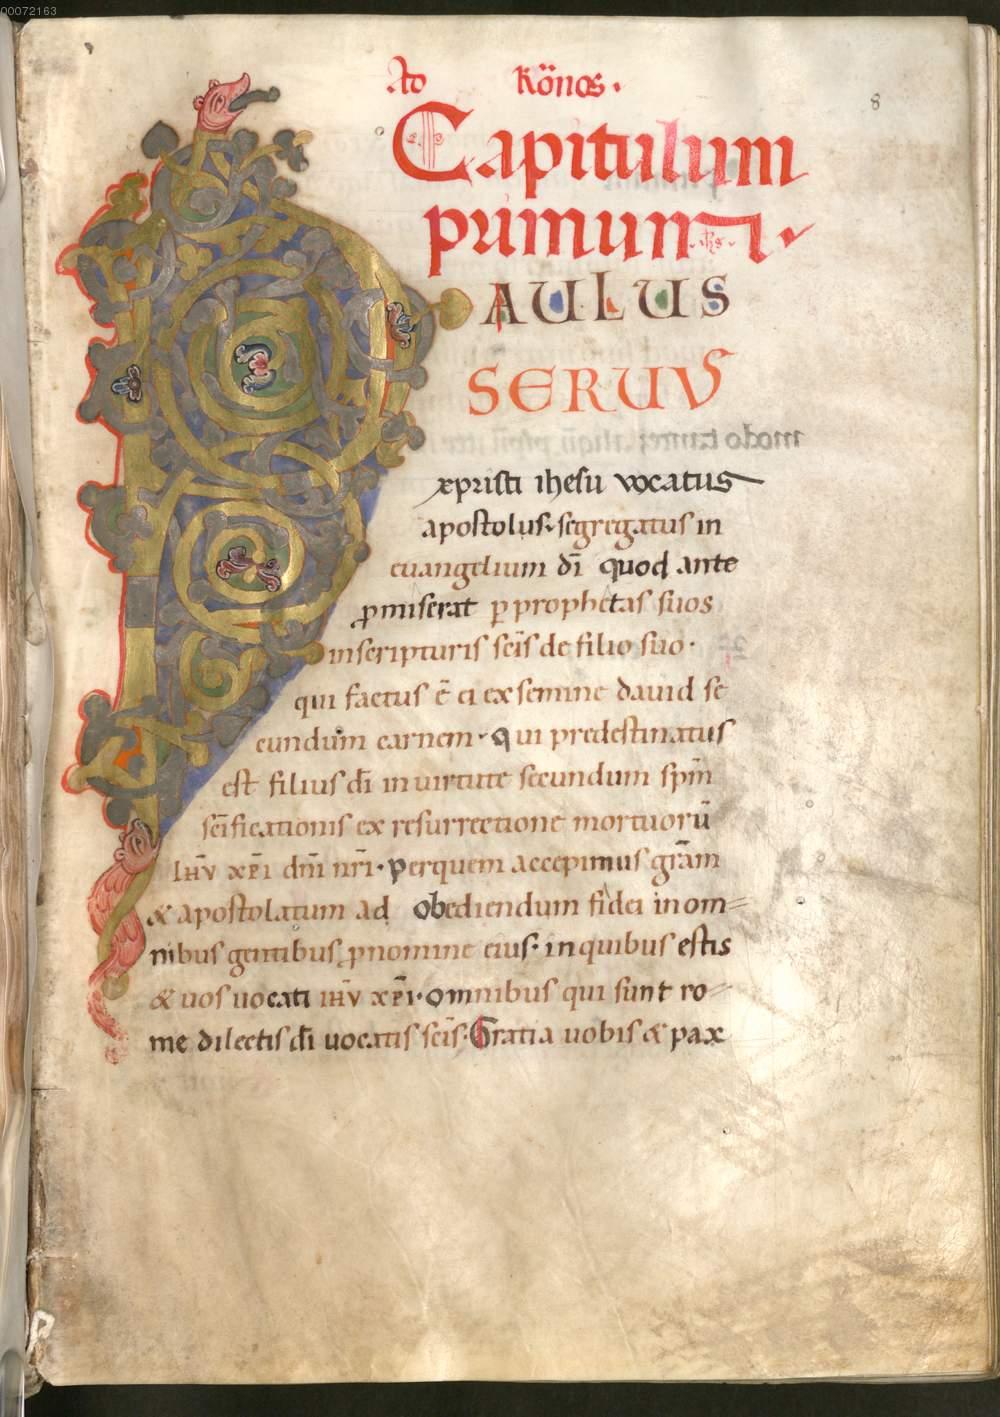 00072163
Ad Röños.
8
Capitulum
primum.
AULUS
SERUV
xpristi ihesu vocatus
apostolus. segregatus in
euangelium dī quod ante
promiserat per prophetas suos
inscripturis scīs de filio suo.
qui factus ē ei exsemine dauid se
cundum carnem. Qui predestinatus
est filius dī inuirtute secundum spm̄
scīficationis ex resurrectione mortuorū
Ihv̄ xp̄i dn̄i nr̄i. Perquem accepimus grām
& apostolatum ad obediendum fidei inom=
nibus gentibus pronomine eius. inquibus estis
& uos uocati ihv̄ xp̄i. Omnibus qui sunt ro=
me dilectis dī uocatis scīs. Gratia uobis & pax